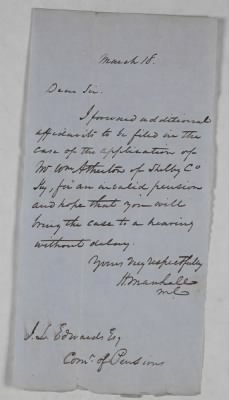 March 18.
Dear Sir.
I forward additional
affidavits to be filed in the
case of the application of
Mr Wm Atherton of Shelby Co
Ky, for an invalid pension
and hope that you will
bring the case to a hearing
without delay.
Yours very respectfully
H Marshall
J. L. Edwards Esq
Comr. of Pensions